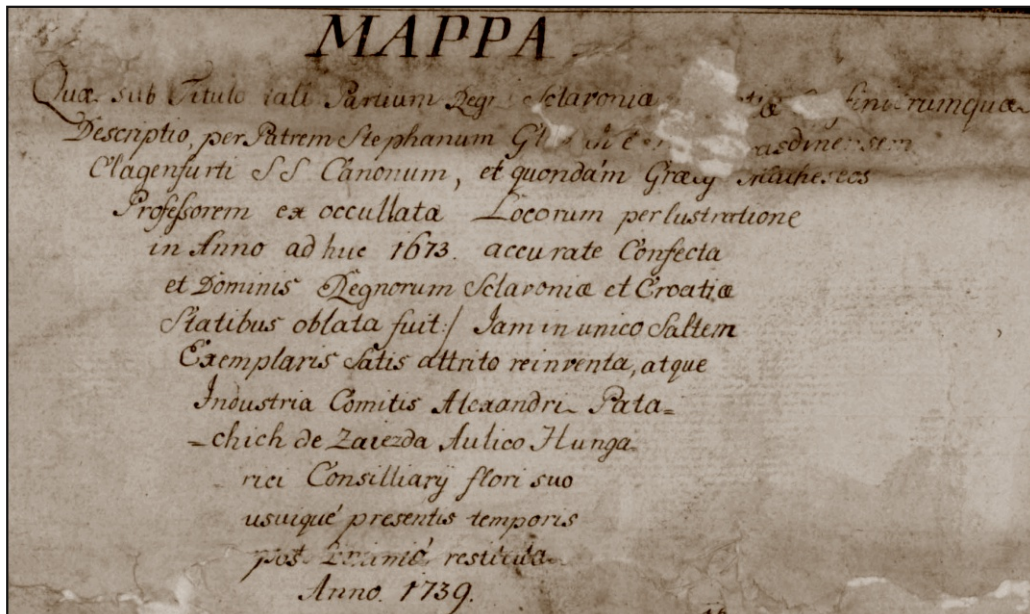 MAPPA
Quæ sub Titulo tali Partium Regn Sclavoniæ finiumquæ
Descriptio, per Patrem Stephanum Gl asdinensem
Clagenfurti S S. Canonum, et quondám Græcÿ
Professorem ex occullata Locorum perlustratione
in Anno ad huc 1673. accurate Confecta
et Dominis Regnorum Sclavoniæ et Croatiæ
Statibus oblata fuit:/ Jam in unico Saltem
Exemplaris Satis attrito reinventa, atque
Industria Comitis Alexandri Pata=
=chich de Zaiezda Aulico Hunga
rici Consilliarÿ flori suo
usuiqué presentis temporis
post restituta
Anno. 1739.